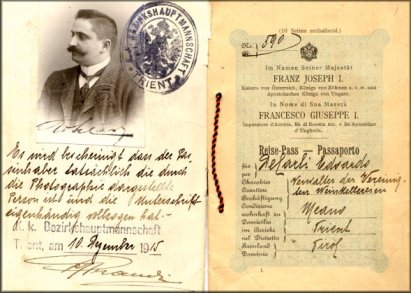 K. K. BEZIRKSHAUPTMANNSCHAFT
TRIENT
Es wird bescheinigt dass der Pas-
sinhaber tatsächlich die durch
die Photographie dargestellte
Person ist und die Unterschrift
eigenhändig vollzogen hat.
k. k. Bezirkshauptmannschaft
Trient, am 10 Dezember 1915
(16 Seiten enthaltend.)
№ 590
Im Namen Seiner Majestät
FRANZ JOSEPH I.
Kaisers von Österreich, Königs von Böhmen u. s. w. und
Apostolischen Königs von Ungarn.
In Nome di Sua Maestà
FRANCESCO GIUSEPPE I.
Imperatore d'Austria, Re di Boemia ecc. e Re Apostolico
d'Ungheria.
Reise-Pass — Passaporto
für
per Defarli Edoardo
Charakter
Carattere Verwalter der Vereinig-
Beschäftigung
Condizione ten Weinkellereien
wohnhaft zu
Domiciliato in Meano
im Bezirke
nel Distretto Trient
Kronland
Dominio Tirol
1.